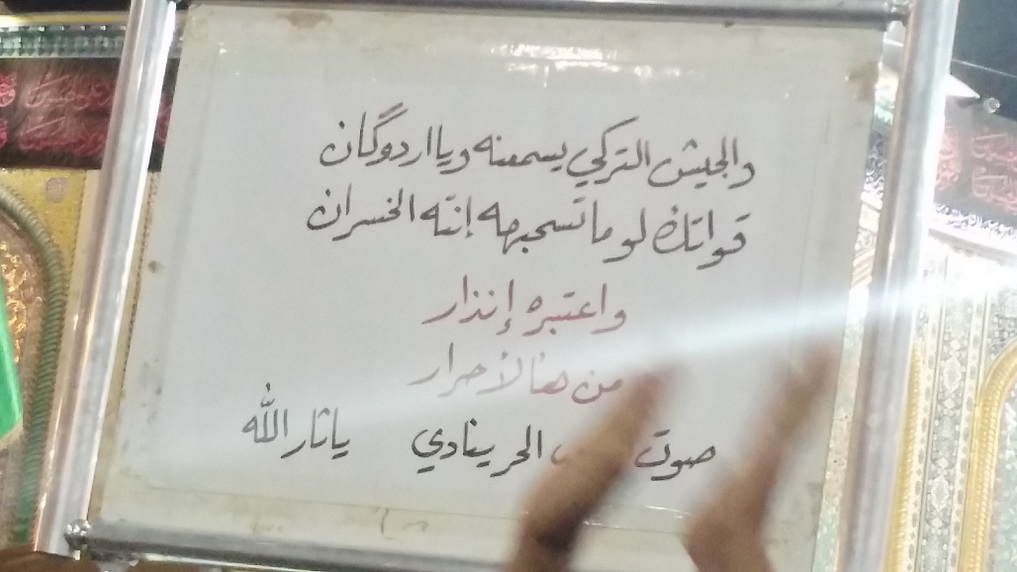 والجيش التركي يسمعنه ويا اردوگان
قواتك لو ما تسحبهه إنته الخسران
واعتبره إنذار
من هالأحرار
صوت الحر ينادي يا ثار الله